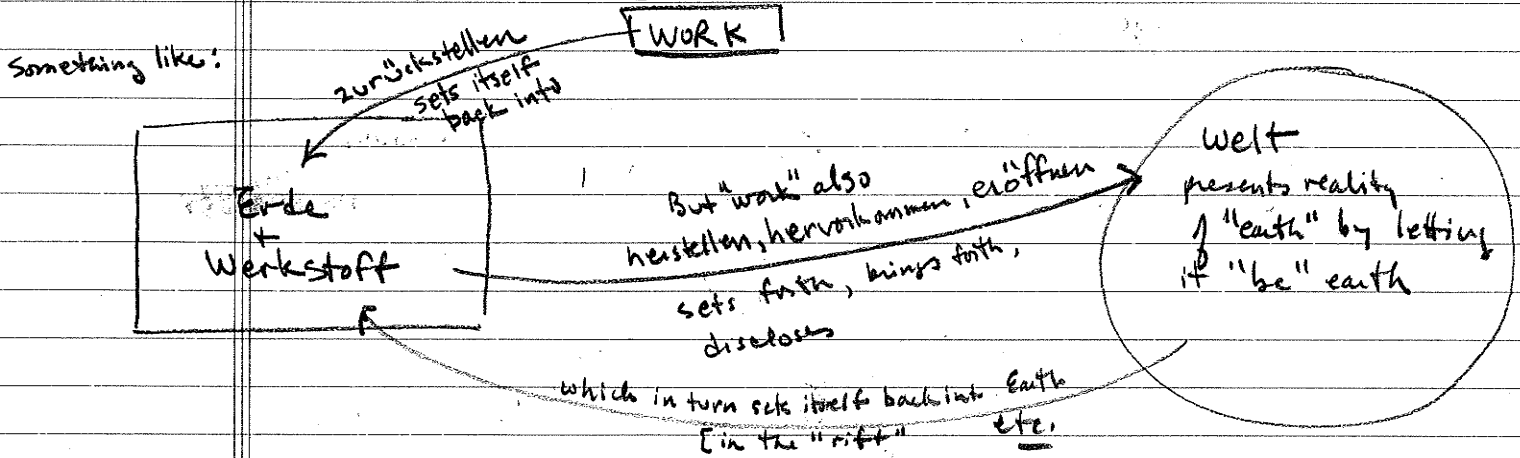 Something like:
WORK
zurückstellen
sets itself
back into
Erde
+
Werkstoff
But "work" also
herstellen, hervorkommen, eröffnen
sets forth, brings forth,
discloses
Welt
presents reality
of "earth" by letting
it "be" earth
which in turn sets itself back into Earth
[in the "rift" etc.